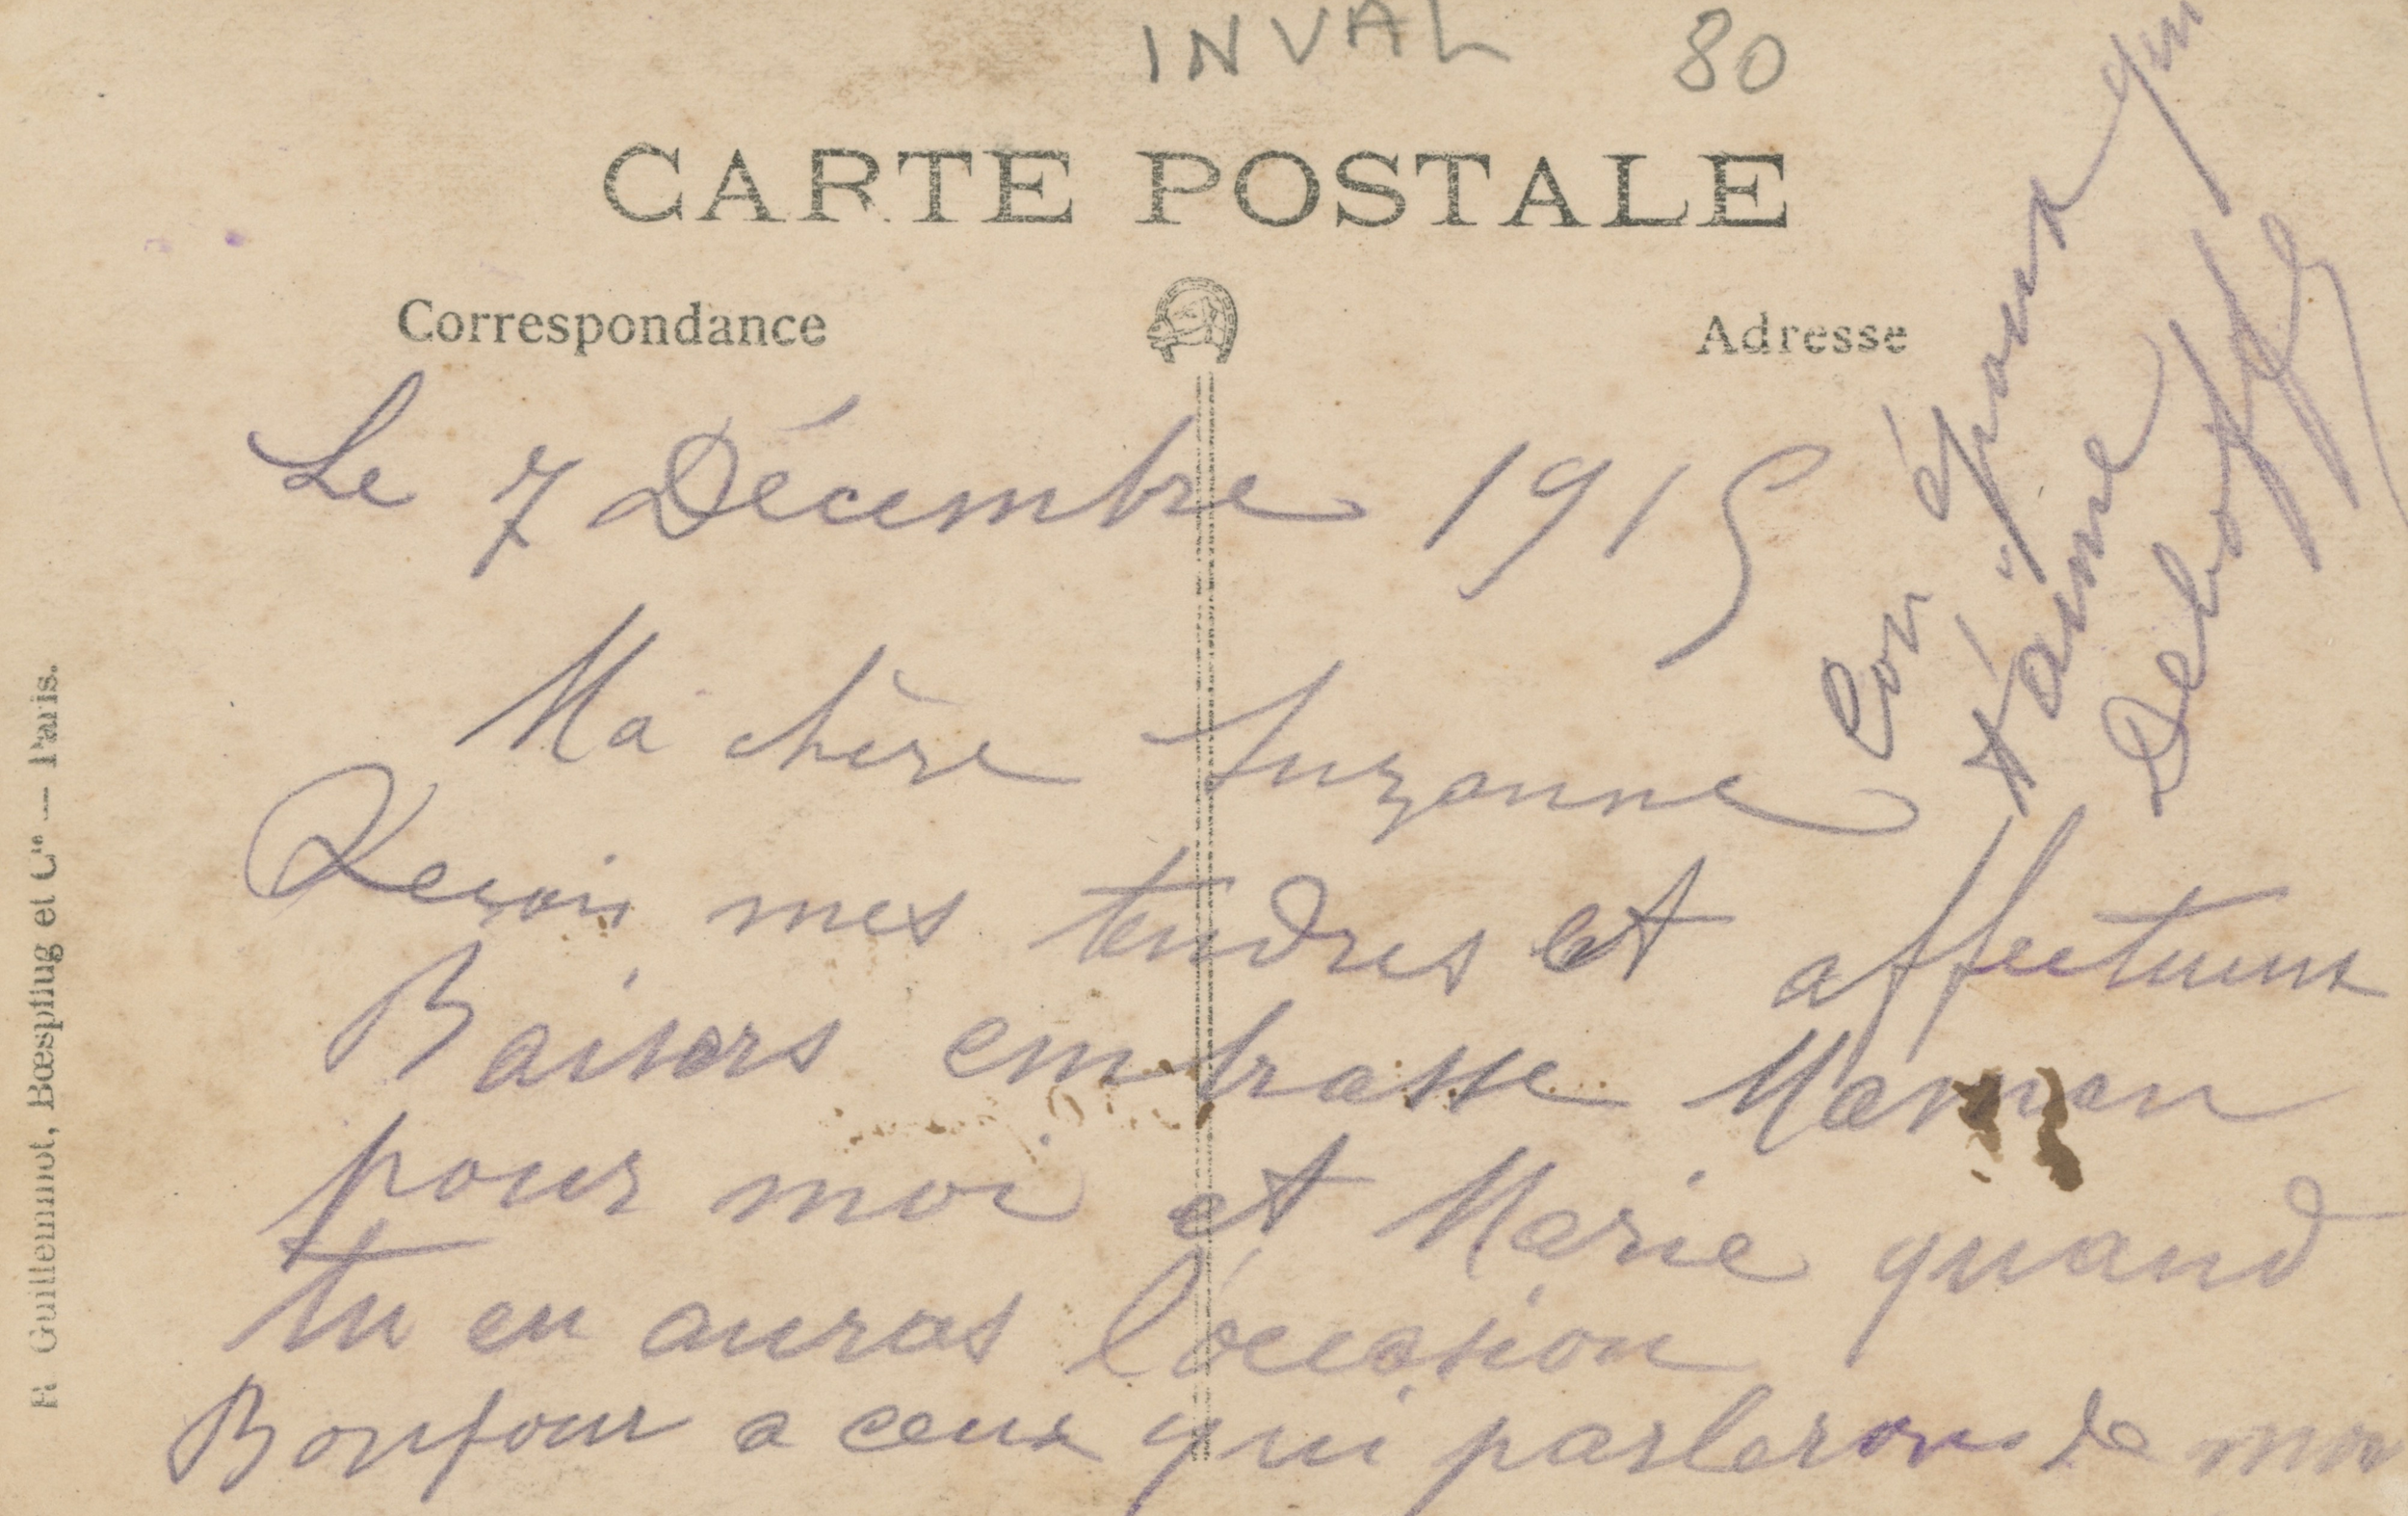 INVAL 80
CARTE POSTALE
Correspondance
Adresse
Le 7 Décembre 1915
Ma chère Suzanne
Recois mes tendres et affectueux
Baisers embrasse Maman
pour moi et Marie quand
tu en auras l'occasion
Bonjour a ceux qui parlerons de moi
Ton époux qui
t'aime
Guillemmot, Bœspflug et Cie — Paris.